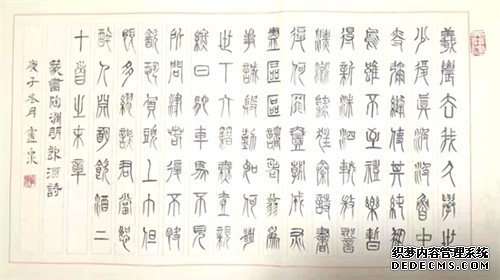 羲農去我久舉世
少復真汲汲魯中
叟彌縫使其純鳳
鳥雖不至禮樂暫
得新洙泗輟微響
漂流逮狂秦詩書
復何罪一朝成灰
塵區區諸老翁為
事誠殷勤如何絕
世下六籍無一親
終日馳車走不見
所問津若復不快
飲空負頭上巾但
恨多謬誤君當恕
醉人淵明飲酒二
十首之末章
篆書陶淵明飲酒詩
庚子冬月
织梦内容管理系统
DEDECMS.COM